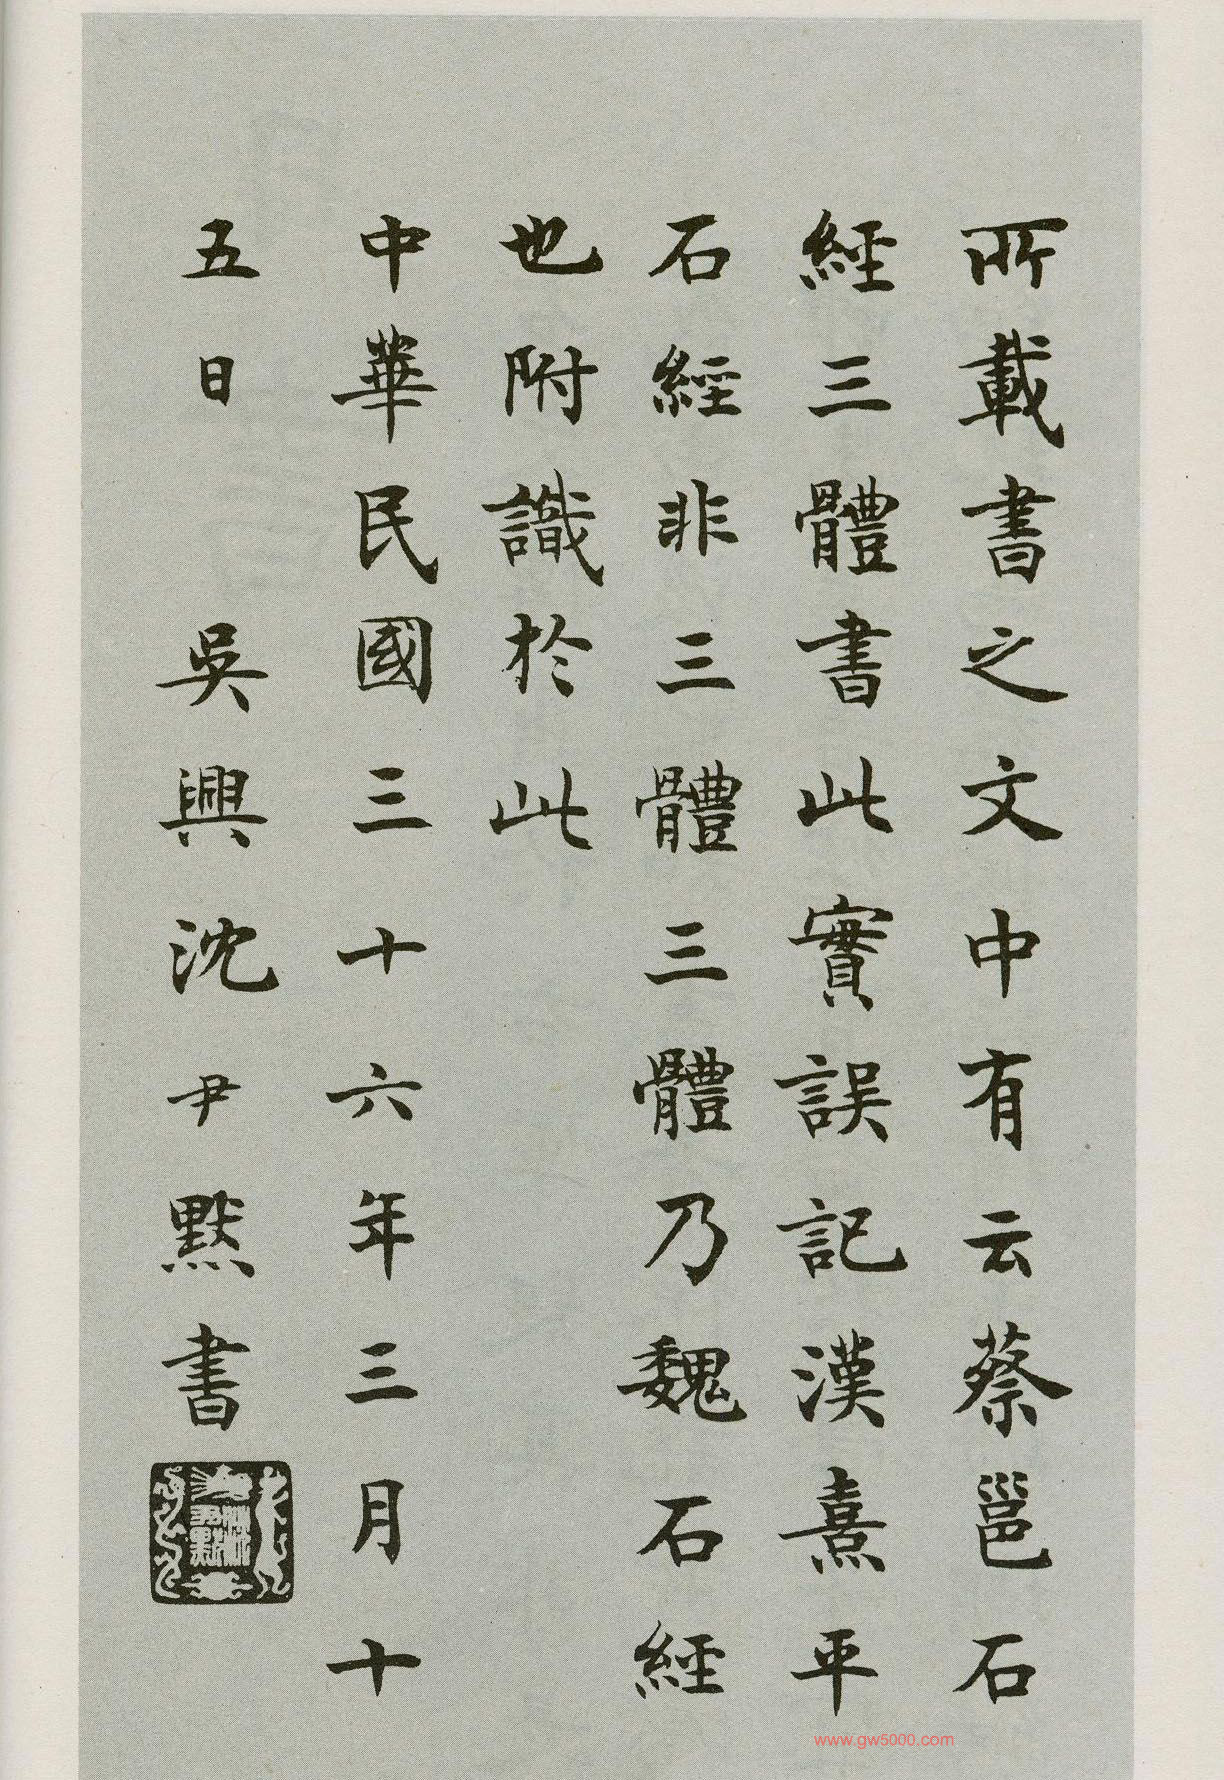 所載書之文中有云蔡邕石
經三體書此實誤記漢熹平
石經非三體三體乃魏石經
也附識於此
中華民國三十六年三月十
五日 吳興沈尹默書
www.gw5000.com